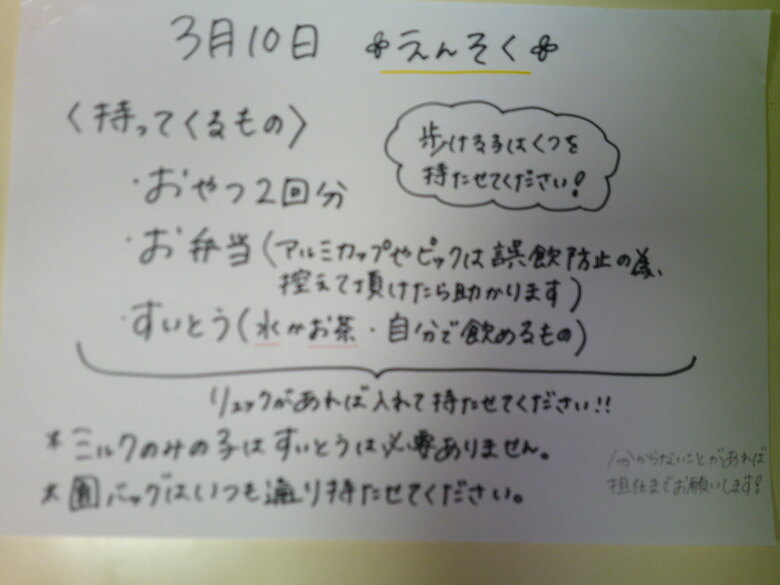 3月10日 えんそく
〈持ってくるもの〉
歩ける子はくつを
持たせてください!
・おやつ2回分
・お弁当(アルミカップやピックは誤飲防止の為、
控えて頂けたら助かります)
・すいとう(水かお茶・自分で飲めるもの)
リュックがあれば入れて持たせてください!!
*ミルクのみの子はすいとうは必要ありません。
*園バッグはいつも通り持たせてください。
分からないことがあれば
担任までお願いします!